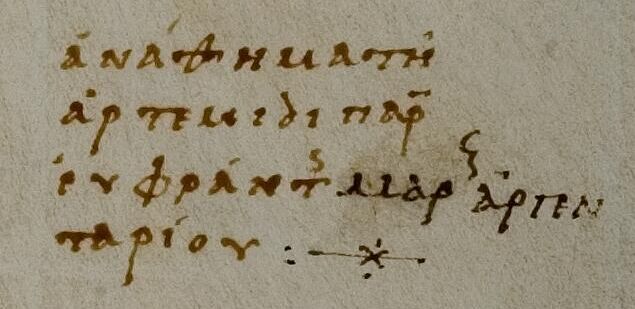 ἀνάθημα τῆ
ἀρτέμιδι παρ
ἐυφράντς μαρς ἀρπεν
ταρίου :